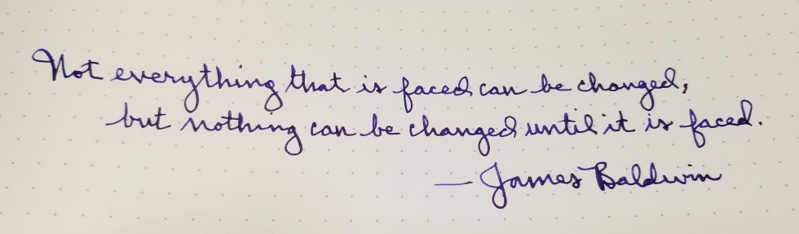 Not everything that is faced can be changed,
but nothing can be changed until it is faced.
— James Baldwin